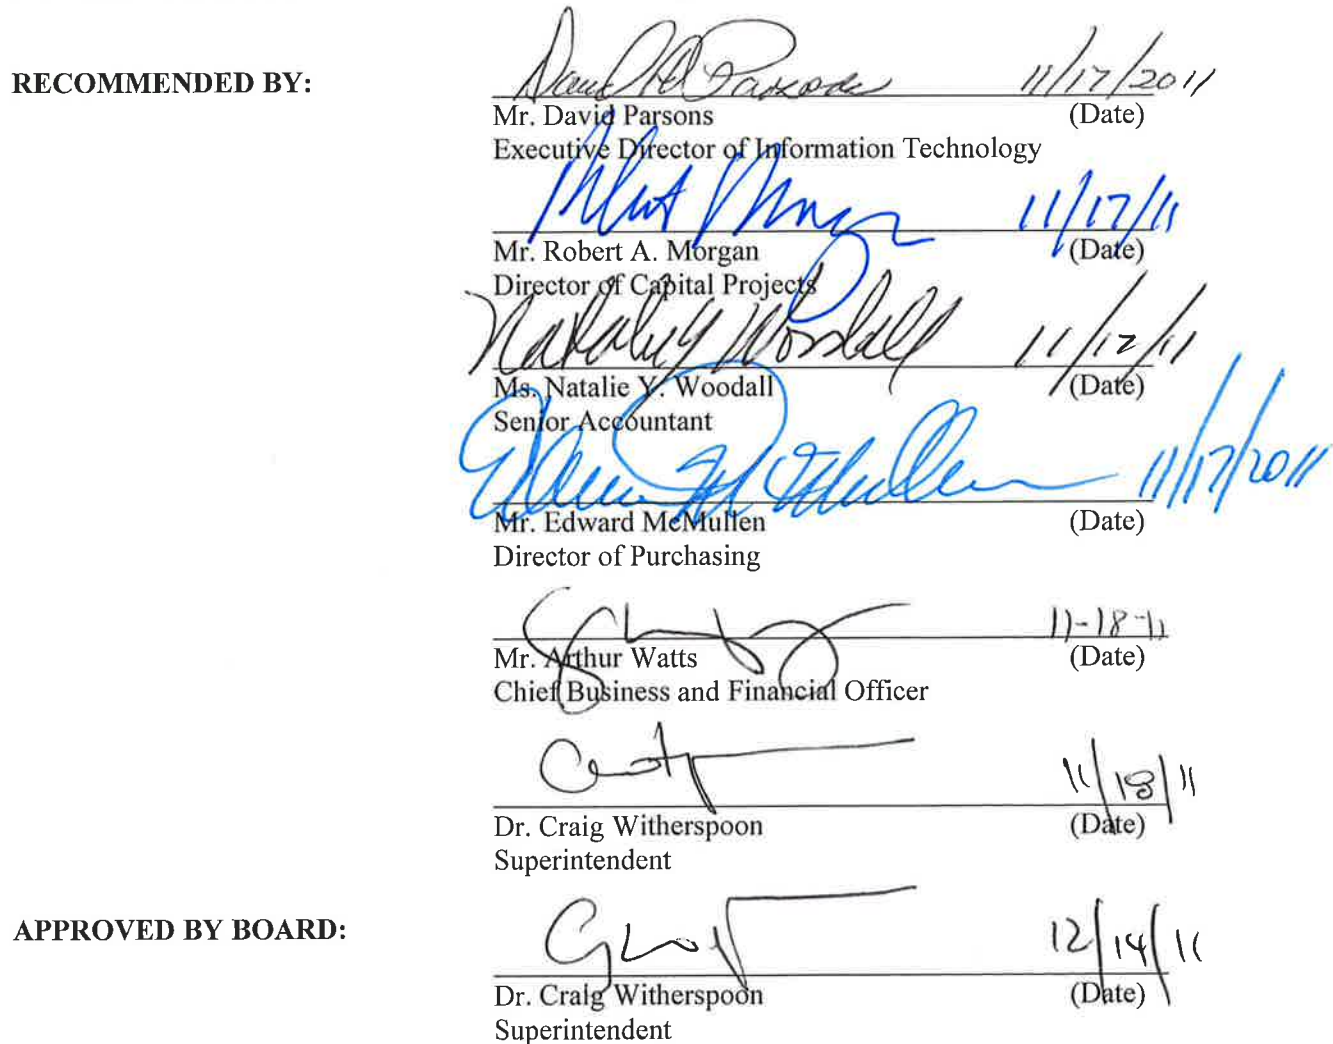 RECOMMENDED BY:
David Parsons 11/17/2011
Mr. David Parsons (Date)
Executive Director of Information Technology
Robert Morgan 11/17/11
Mr. Robert A. Morgan (Date)
Director of Capital Projects
Natalie Y Woodall 11/12/11
Ms. Natalie Y. Woodall (Date)
Senior Accountant
McMullen 11/17/2011
Mr. Edward McMullen (Date)
Director of Purchasing
11-18-11
Mr. Arthur Watts (Date)
Chief Business and Financial Officer
11/18/11
Dr. Craig Witherspoon (Date)
Superintendent
APPROVED BY BOARD:
12/14/11
Dr. Craig Witherspoon (Date)
Superintendent